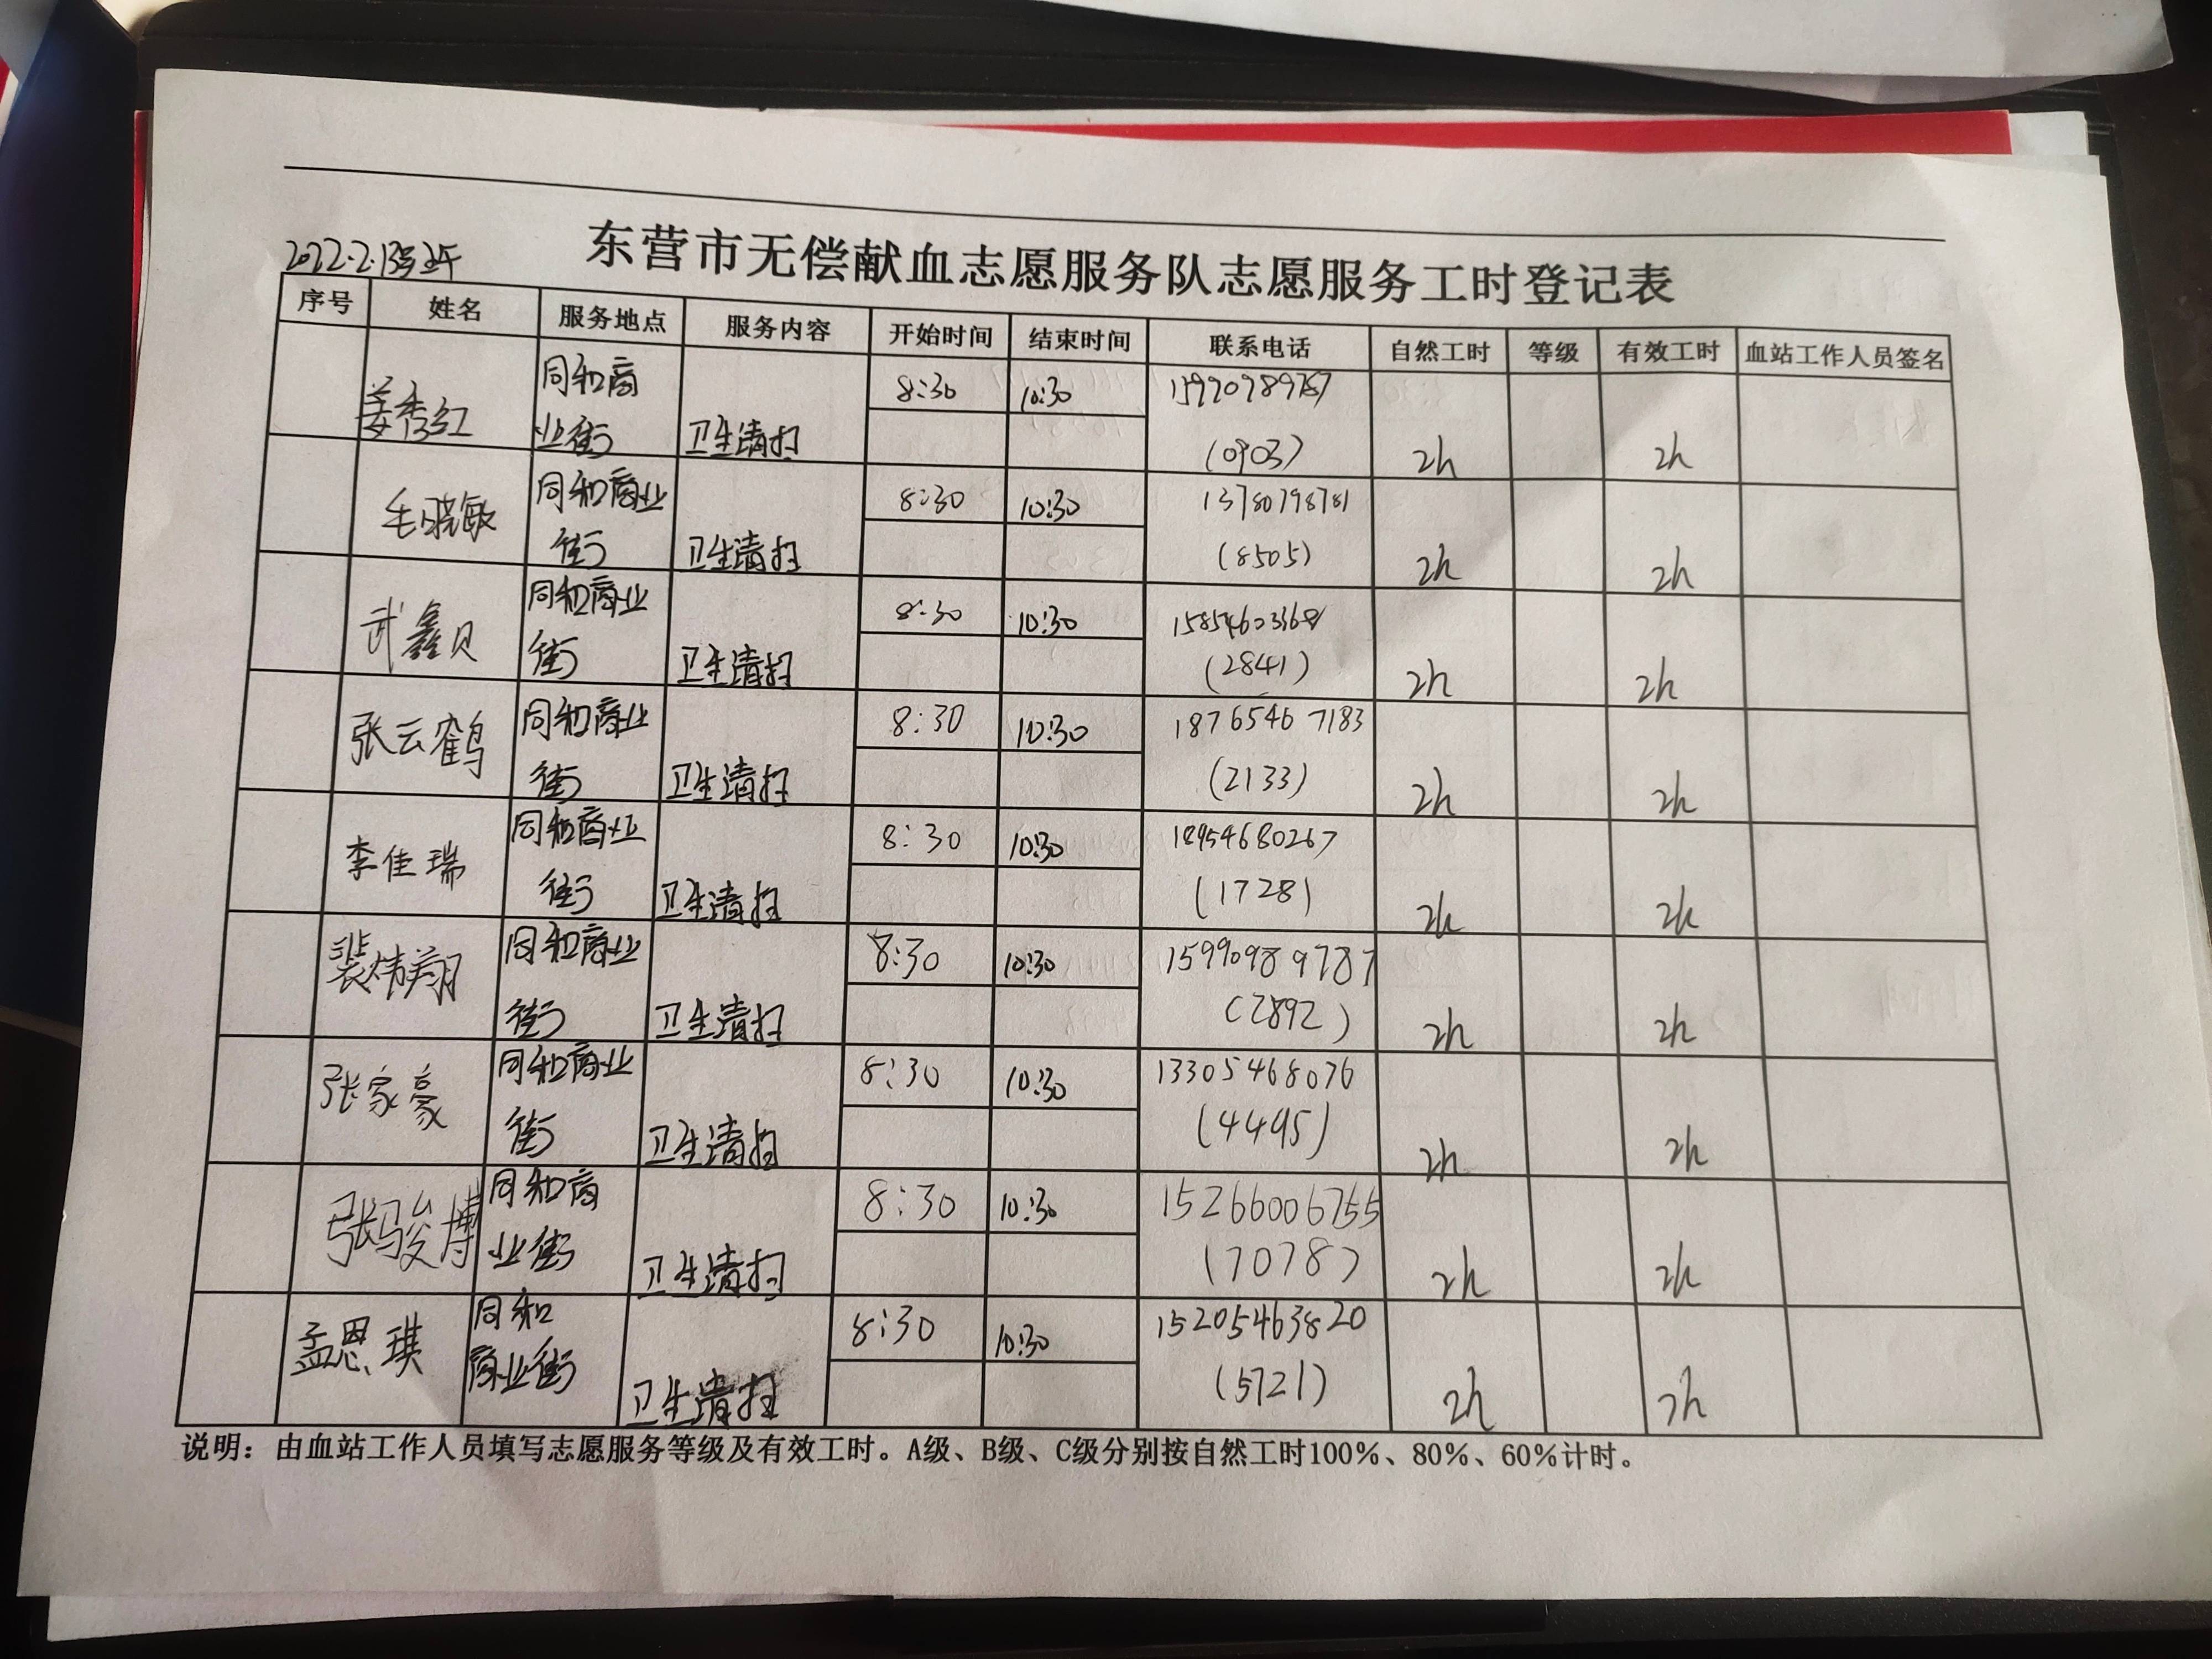 东营市无偿献血志愿服务队志愿服务工时登记表
2022.2.13号上午
序号 姓名 服务地点 服务内容 开始时间 结束时间 联系电话 自然工时 等级 有效工时 血站工作人员签名
姜秀红 同和商 8:30 10:30
业街 卫生清扫 (0903) 2h 2h
毛晓敏 同和商业 8:30 10:30 13780798781
街 卫生清扫 (8505) 2h 2h
武鑫贝 同和商业 8:30 10:30 15854603368
街 卫生清扫 (2841) 2h 2h
张云鹤 同和商业 8:30 10:30 18765467183
街 卫生清扫 (2133) 2h 2h
李佳瑞 同和商业 8:30 10:30 18954680267
街 卫生清扫 (1728) 2h 2h
裴炜翔 同和商业 8:30 10:30 15990989787
街 卫生清扫 (2892) 2h 2h
张家豪 同和商业 8:30 10:30 13305468076
街 卫生清扫 (4495) 2h 2h
张骏博 同和商 8:30 10:30 15266006755
业街 卫生清扫 (7078) 2h 2h
孟恩琪 同和 8:30 10:30 15205463820
商业街 卫生清扫 (5721) 2h 2h
说明：由血站工作人员填写志愿服务等级及有效工时。A级、B级、C级分别按自然工时100%、80%、60%计时。